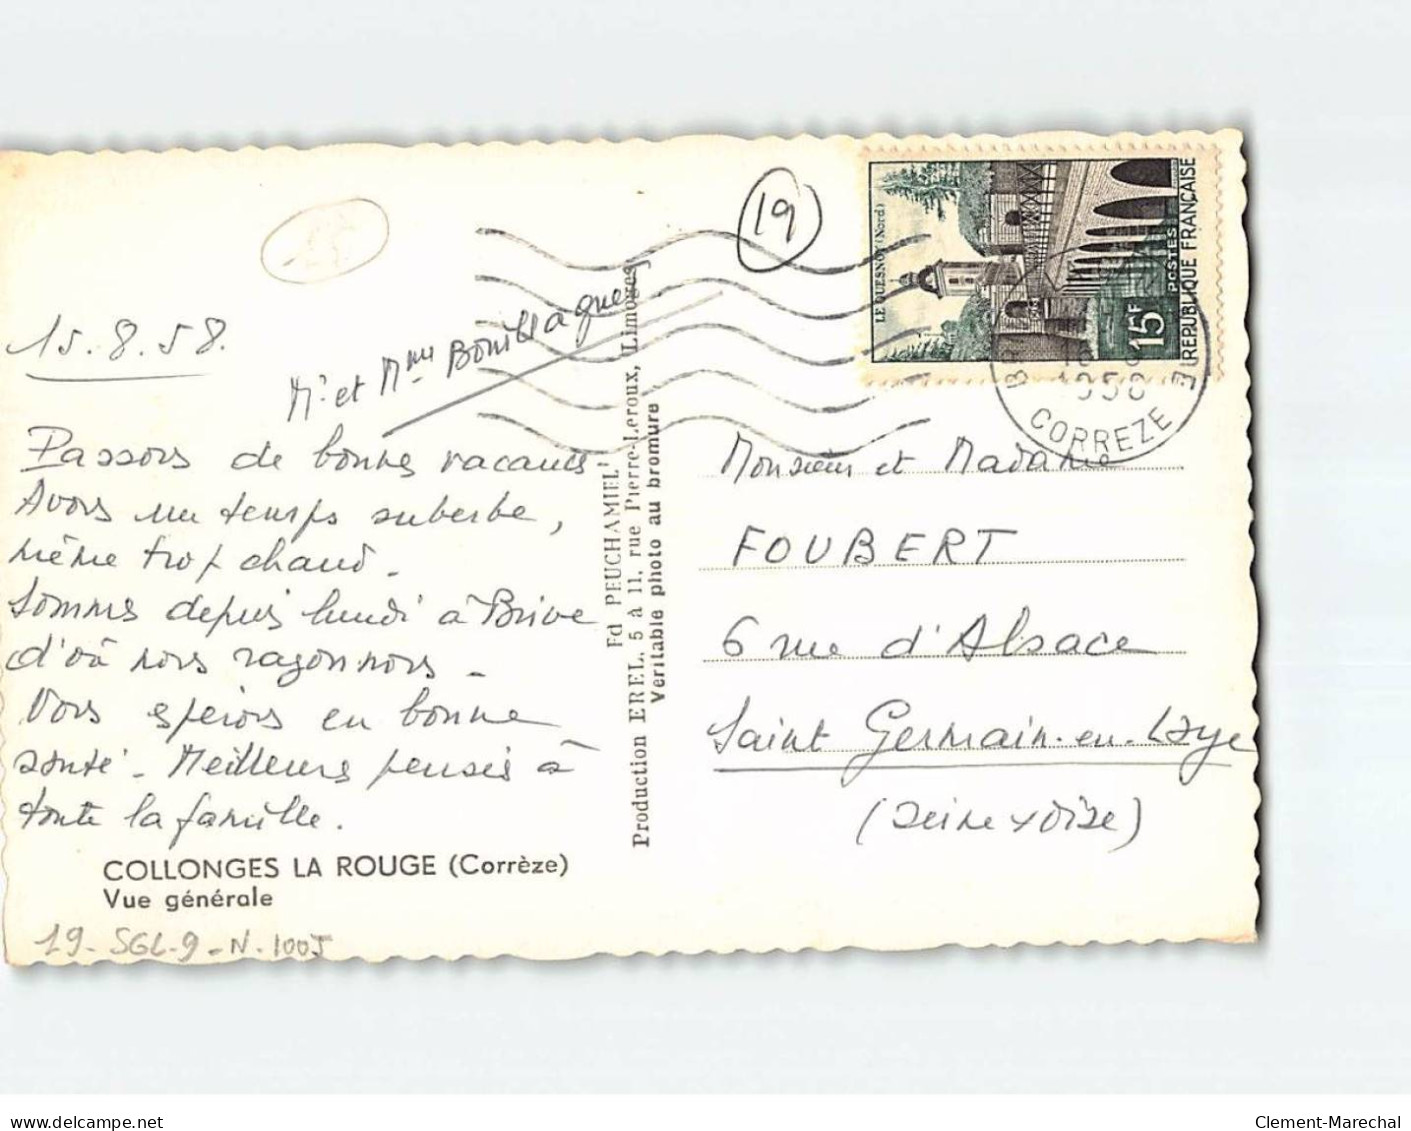 19
15
15.8.58.
Mr et Mme Bouillaguet
Passons de bonnes vacances
Avons un temps superbe,
même trop chaud.
Sommes depuis lundi à Brive
d'où nous rayonnons.
Vous espérons en bonne
santé. Meilleures pensées à
toute la famille.
COLLONGES LA ROUGE (Corrèze)
Vue générale
19-SGL-9-N-1005
Fd PEUCHAMIEL
Production EREL, 5 à 11, rue Pierre-Leroux, Limoges
Veritable photo au bromure
LE QUESNOY (Nord)
15F
POSTES
REPUBLIQUE FRANÇAISE
1958
CORREZE
Monsieur et Madame
FOUBERT
6 rue d'Alsace
Saint Germain-en-Laye
(Seine & Oise)
www.delcampe.net
Clement-Marechal